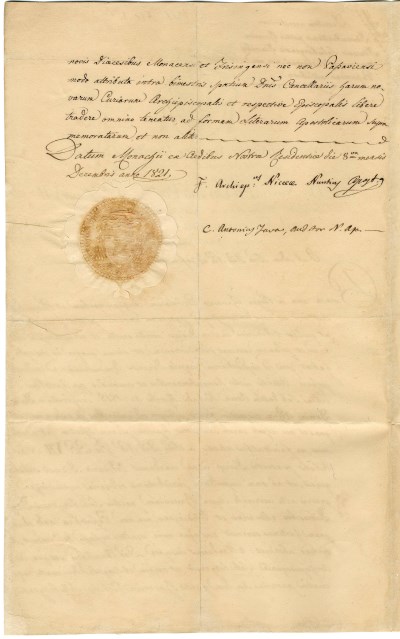 novis Diœcesibus Monacensi et Frisingensi nec non Passaviensi
modo attributa intra bimestre spatium Dnis Cancellariis harum no-
varum Curiarum Archiepiscopalis et respective Episcopalis libere
tradere omnino teneatur, ad formam Literarum Apostolicarum supra
memoratarum et non aliter
Datum Monachii ex Ædibus Nostræ Residentiæ die 8va mensis
Decembris anno 1821.
F. Archiep.us Nicææ Nuntius Apost.
C. Antonius Aud.